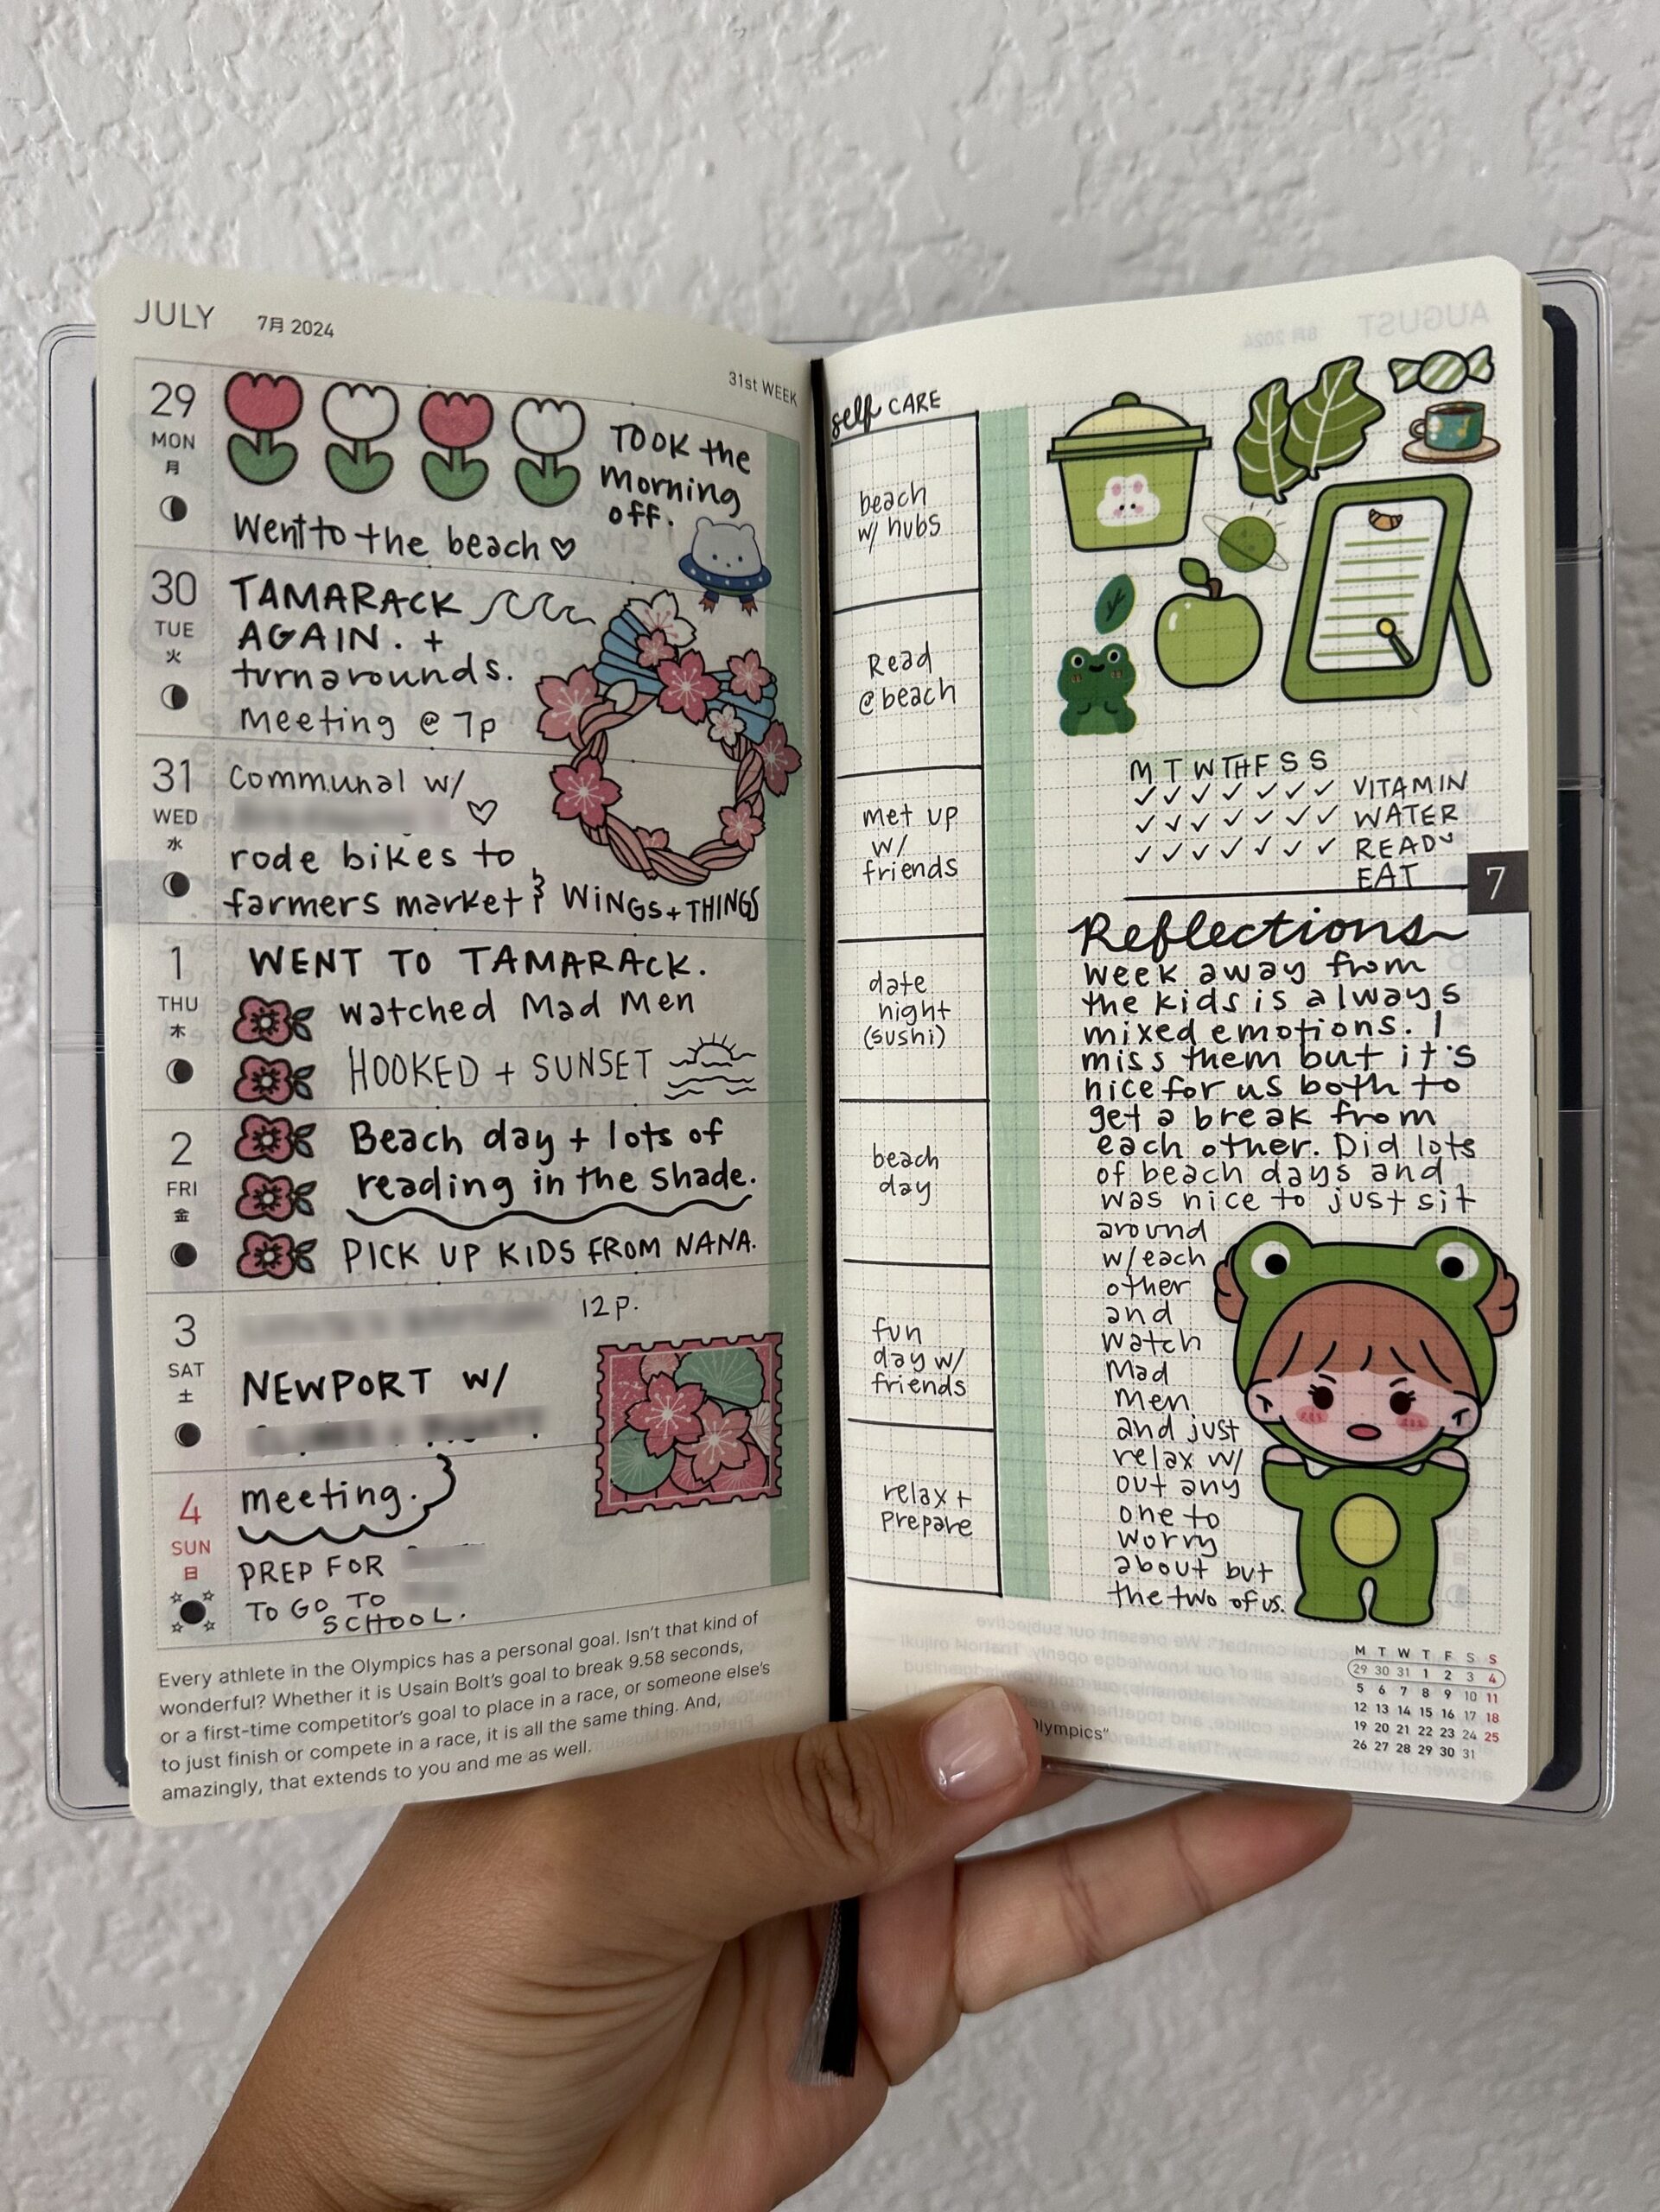 JULY 7月 2024
31st WEEK
29
MON
月
TOOK the
morning
off.
Went to the beach ♡
30
TUE
火
TAMARACK
AGAIN. +
turnarounds.
Meeting @ 7p
31
WED
水
Communal w/
♡
rode bikes to
farmers market & WINGS + THINGS
1
THU
木
WENT TO TAMARACK.
watched Mad Men
HOOKED + SUNSET
2
FRI
金
Beach day + lots of
reading in the shade.
PICK UP KIDS FROM NANA.
3
SAT
土
12 p.
NEWPORT W/
4
SUN
日
meeting.
PREP FOR
TO GO TO
SCHOOL.
Every athlete in the Olympics has a personal goal. Isn't that kind of
wonderful? Whether it is Usain Bolt's goal to break 9.58 seconds,
or a first-time competitor's goal to place in a race, or someone else's
to just finish or compete in a race, it is all the same thing. And,
amazingly, that extends to you and me as well.
self CARE
beach
w/ hubs
Read
@ beach
met up
w/
friends
date
night
(sushi)
beach
day
fun
day w/
friends
relax +
prepare
M T W TH F S S
✓ ✓ ✓ ✓ ✓ ✓ ✓ VITAMIN
✓ ✓ ✓ ✓ ✓ ✓ ✓ WATER
✓ ✓ ✓ ✓ ✓ ✓ ✓ READ
EAT
7
Reflections
week away from
the kids is always
mixed emotions. I
miss them but it's
nice for us both to
get a break from
each other. Did lots
of beach days and
was nice to just sit
around
w/each
other
and
watch
Mad
Men
and just
relax w/
out any
one to
worry
about but
the two of us.
Olympics"
M T W T F S S
29 30 31 1 2 3 4
5 6 7 8 9 10 11
12 13 14 15 16 17 18
19 20 21 22 23 24 25
26 27 28 29 30 31